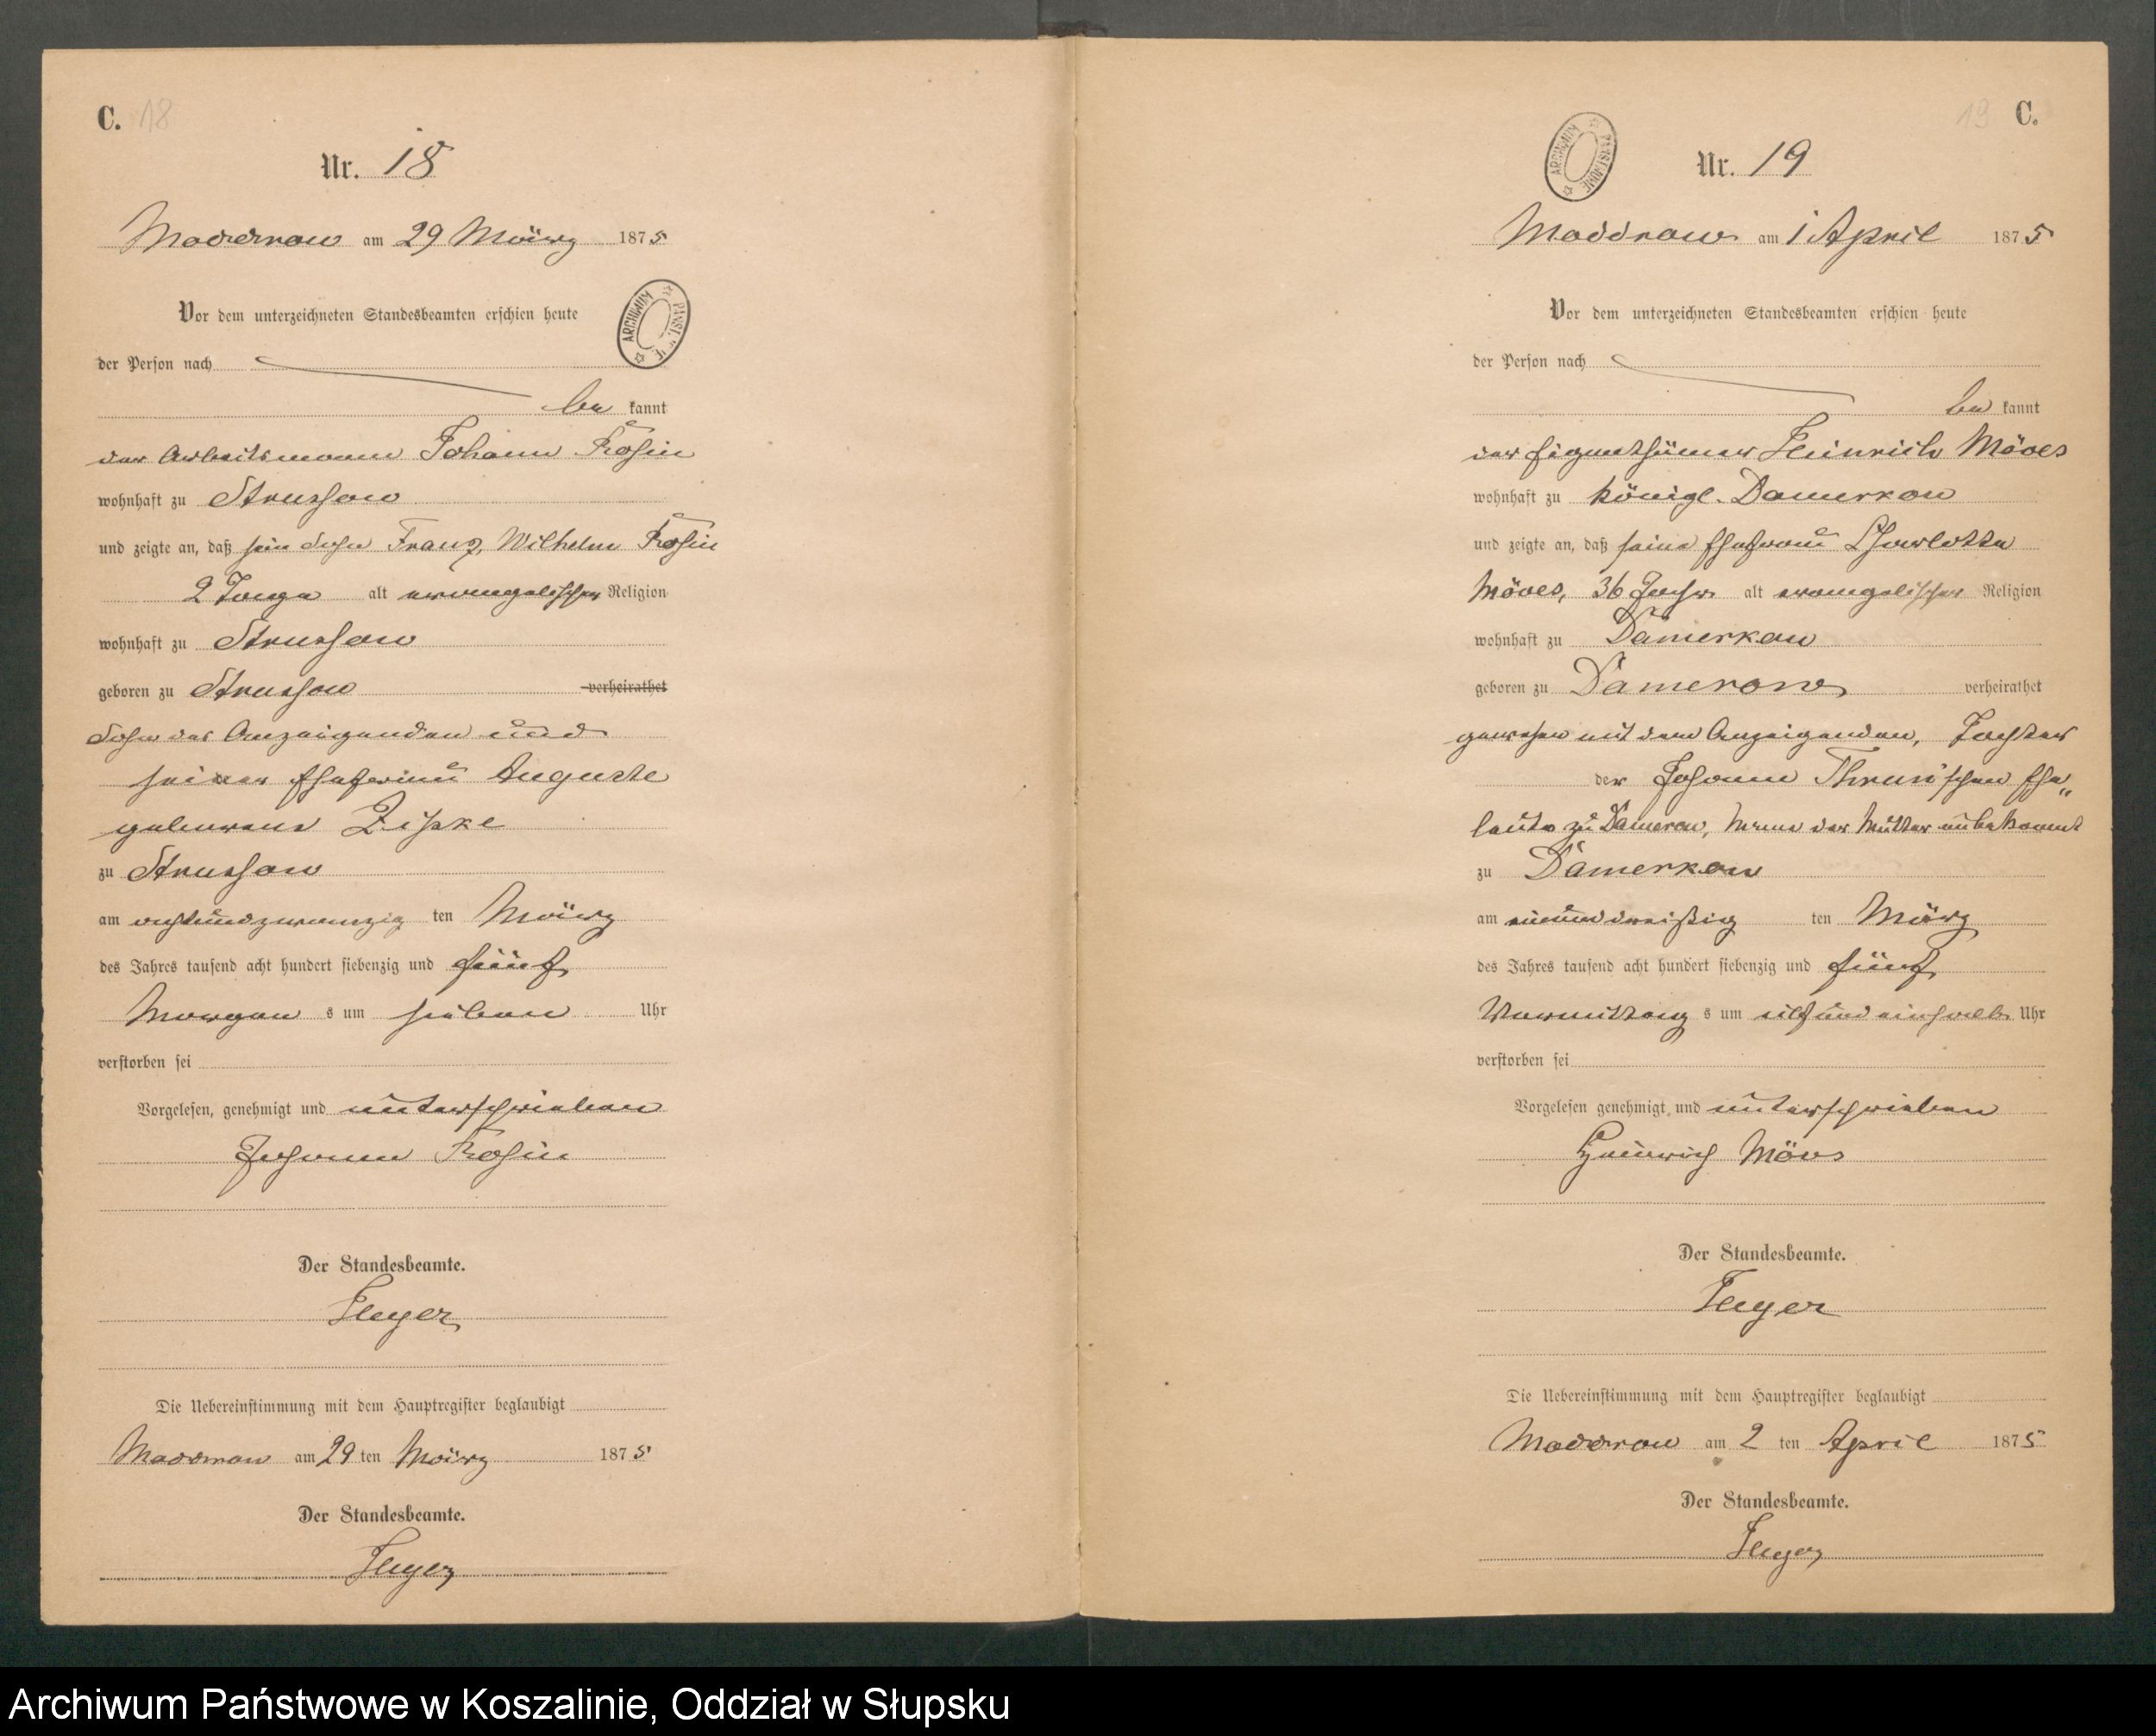 C. 18
Nr. 18
Moddrow am 29 März 1875
ARCHIWUM
Vor dem unterzeichneten Standesbeamten erschien heute
der Person nach
be kannt
der Arbeitsmann Johann Rosin
wohnhaft zu Strussow
und zeigte an, daß sein Sohn Franz, Wilhelm Rosin
2 Tage alt evangelischer Religion
wohnhaft zu Strussow
geboren zu Strussow verheirathet
Sohn des Anzeigenden und
seiner Ehefrau Auguste
geborene Zipke
zu Strussow
am achtundzwanzig ten März
des Jahres tausend acht hundert siebenzig und fünf
Morgen s um sieben Uhr
verstorben sei
Vorgelesen, genehmigt und unterschrieben
Johann Rosin
Der Standesbeamte.
Die Uebereinstimmung mit dem Hauptregister beglaubigt
Moddrow am 29 ten März 1875
Der Standesbeamte.
19 C.
Nr. 19
ARCHIWUM PAŃSTWOWE
Moddrow am 1 April 1875
Vor dem unterzeichneten Standesbeamten erschien heute
der Person nach
be kannt
der Eigenthümer Heinrich Möves
wohnhaft zu Königl. Damerkow
und zeigte an, daß seine Ehefrau Charlotte
Möves, 36 Jahr alt evangelischer Religion
wohnhaft zu Damerkow
geboren zu Damerow verheirathet
gewesen mit dem Anzeigenden, Tochter
der Johann Thrun'schen Ehe„
leute zu Damerow, Name der Mutter unbekannt
zu Damerkow
am einunddreißig ten März
des Jahres tausend acht hundert siebenzig und fünf
Vormittag s um elf und einhalb Uhr
verstorben sei
Vorgelesen genehmigt und unterschrieben
Heinrich Mövs
Der Standesbeamte.
Die Uebereinstimmung mit dem Hauptregister beglaubigt
Moddrow am 2 ten April 1875
Der Standesbeamte.
Archiwum Państwowe w Koszalinie, Oddział w Słupsku